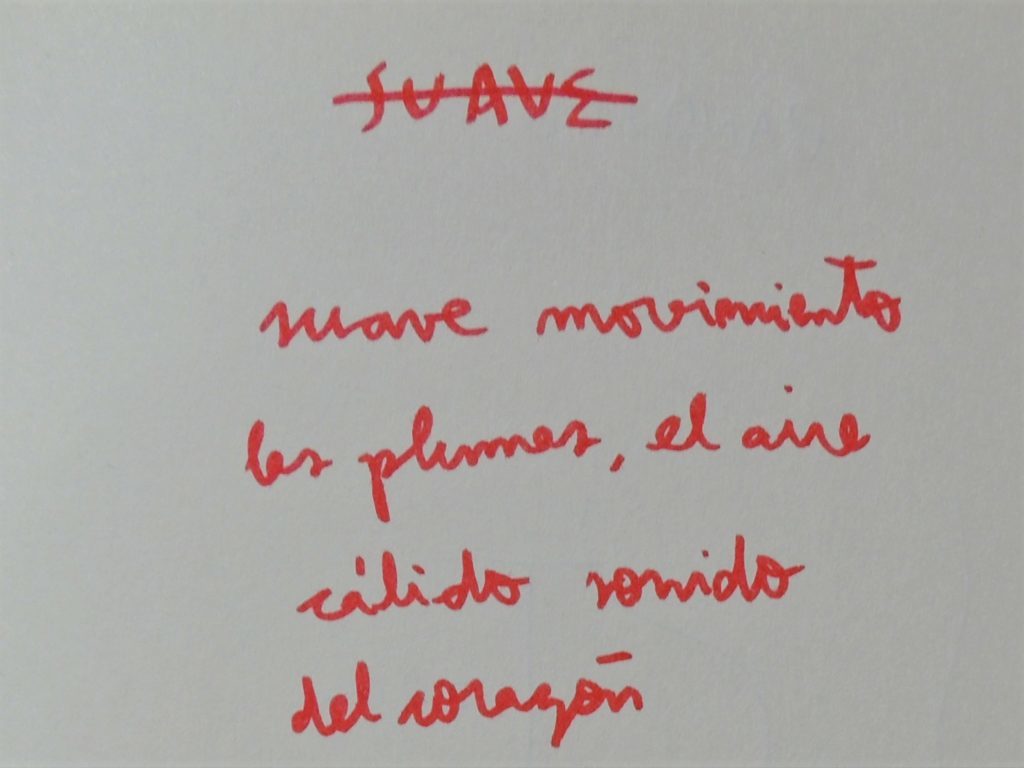 SUAVE
suave movimiento
las plumas, el aire
cálido sonido
del corazón